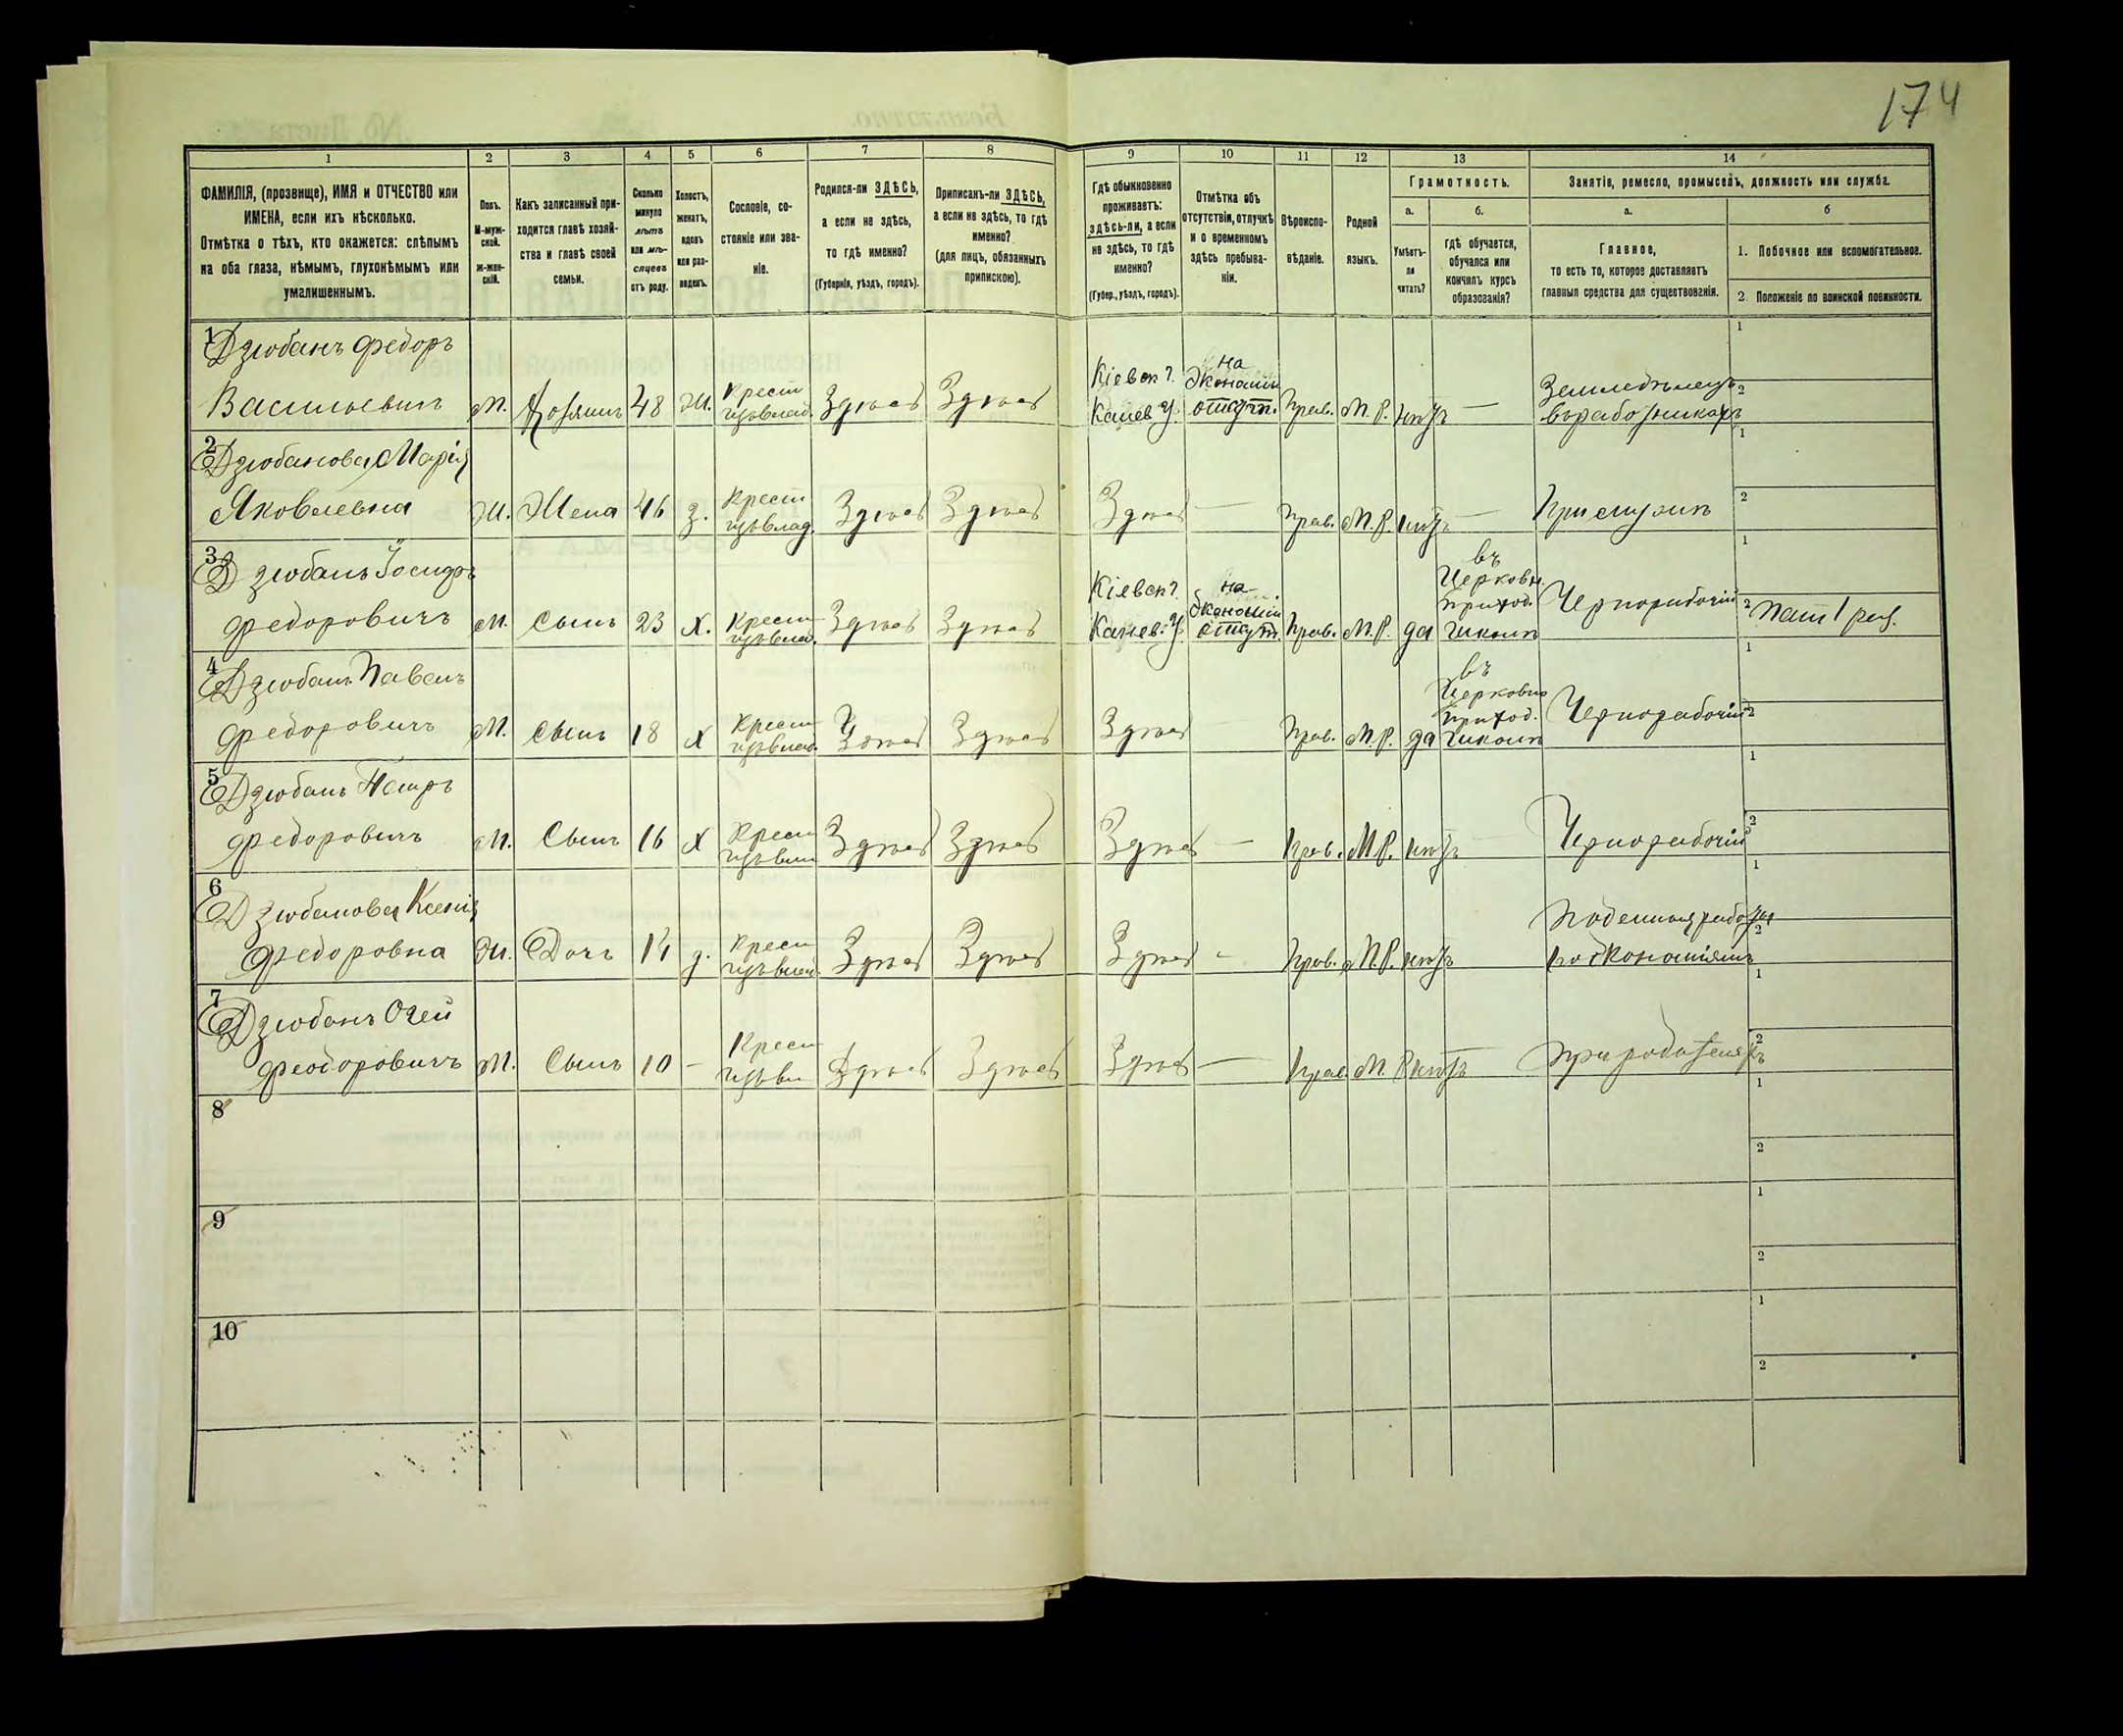 174
1 2 3 4 5 6 7 8 9 10 11 12 13 14
ФАМИЛІЯ, (прозвище), ИМЯ и ОТЧЕСТВО или
ИМЕНА, если ихъ нѣсколько.
Отмѣтка о тѣхъ, кто окажется: слѣпымъ
на оба глаза, нѣмымъ, глухонѣмымъ или
умалишеннымъ.
Полъ.
М-муж-
ской.
Ж-жен-
скій.
Какъ записанный при-
ходится главѣ хозяй-
ства и главѣ своей
семьи.
Сколько
минуло
лѣтъ
или мѣ-
сяцевъ
отъ роду.
Холостъ,
женатъ,
вдовъ
или раз-
веденъ.
Сословіе, со-
стояніе или зва-
ніе.
Родился-ли ЗДѢСЬ,
а если не здѣсь,
то гдѣ именно?
(Губернія, уѣздъ, городъ).
Приписанъ-ли ЗДѢСЬ,
а если не здѣсь, то гдѣ
именно?
(для лицъ, обязанныхъ
припискою).
Гдѣ обыкновенно
проживаетъ:
здѣсь-ли, а если
не здѣсь, то гдѣ
именно?
(Губер., уѣздъ, городъ).
Отмѣтка объ
отсутствіи, отлучкѣ
и о временномъ
здѣсь пребыва-
ніи.
Вѣроиспо-
вѣданіе.
Родной
языкъ.
Грамотность.
а.
Умѣетъ-
ли
читать?
б.
гдѣ обучается,
обучался или
кончилъ курсъ
образованія?
Занятіе, ремесло, промыселъ, должность или служба.
а.
Главное,
то есть то, которое доставляетъ
главныя средства для существованія.
б
1. Побочное или вспомогательное.
2. Положеніе по воинской повинности.
1 Дзюбанъ Федоръ
Васильевичъ М. Хозяинъ 48 Ж. Крест Здѣсь Здѣсь Кіевск г. Канев у. на Экономіи отсутт. Прав. М.Р. нѣтъ — Земледѣлецъ въ работникахъ 1 2
2 Дзюбанова Марія
Яковлевна Ж. Жена 46 з. Крест Здѣсь Здѣсь Здѣсь — Прав. М.Р. нѣтъ — При мужѣ 1 2
3 Дзюбанъ Іосифъ
Федоровичъ М. Сынъ 23 Х. Крест Здѣсь Здѣсь Кіевск г. Канев. у. на Экономіи отсутт. Прав. М.Р. да въ Церковн. приход. школѣ Чернорабочій 1 2
4 Дзюбанъ Павелъ
Федоровичъ М. Сынъ 18 Х Крест Здѣсь Здѣсь Здѣсь Прав. М.Р. да въ Церковно приход. школѣ Чернорабочій 1 2
5 Дзюбанъ Петръ
Федоровичъ М. Сынъ 16 Х Крест Здѣсь Здѣсь Здѣсь — Прав. М.Р. нѣтъ Чернорабочій 1 2
6 Дзюбанова Ксенія
Федоровна Ж. Дочь 14 д. Крест Здѣсь Здѣсь Здѣсь - Прав. М.Р. нѣтъ Поденная работа по экономіямъ 1 2
7 Дзюбанъ
Феодоровичъ М. Сынъ 10 — Крест Здѣсь Здѣсь Здѣсь — Прав. М.Р. нѣтъ При родителяхъ 1 2
8 1 2
9 1 2
10 1 2